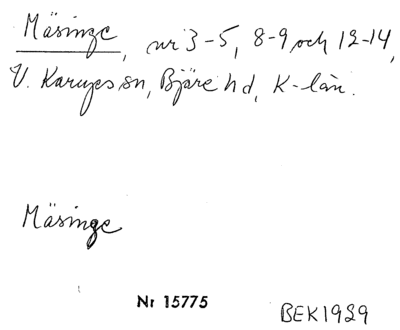 Mäsinge, nr 3-5, 8-9 och 12-14,
V. Karups sn, Bjäre hd, K-län.
Mäsinge
Nr 15775 BEK1929